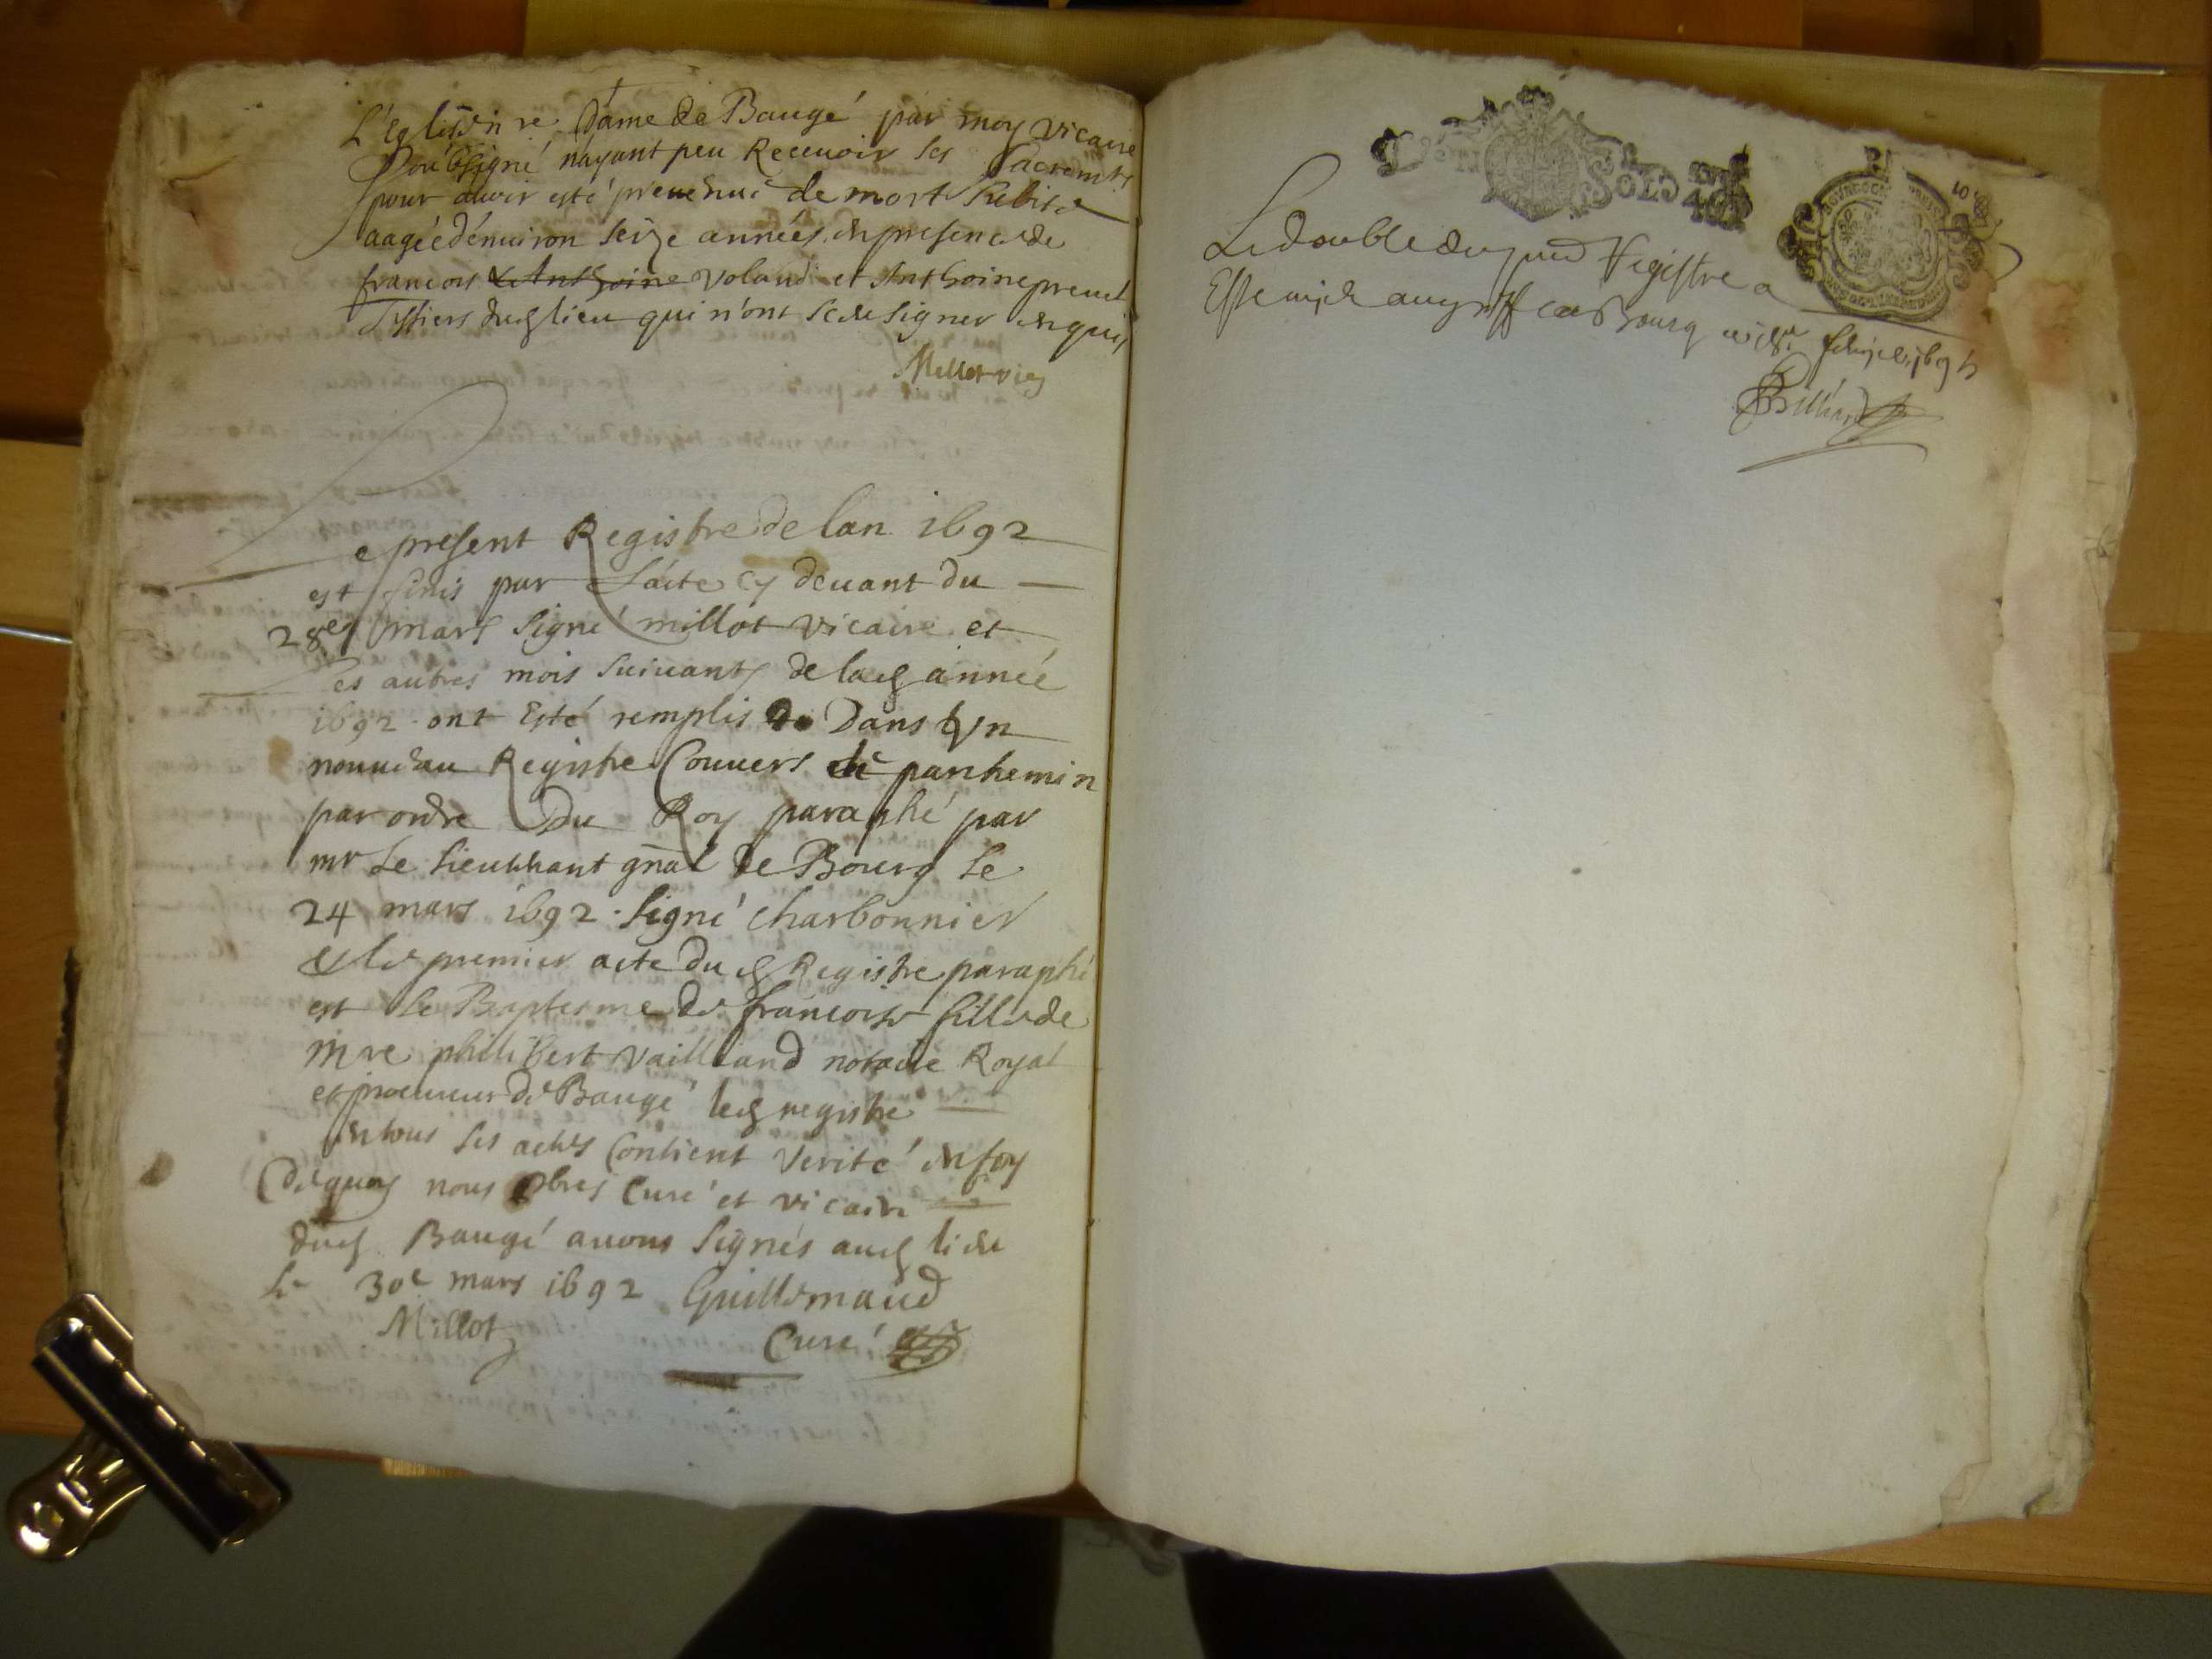 L'Eglise nre Dame de Baugé par moy vicaire
soubsigné n'ayant peu Recevoir les sacremts
pour avoir esté prevenue de mort subite
aagée d'environ seize années en presence de
francois & Anthoine Voland et Anthoine
tissiers dud lieu qui n'ont sceu signer enquis
Millot vic
Le present Registre de lan 1692
est finis par L'acte cy devant du
28e mars signé millot vicaire et
Les autres mois suivants de lad année
1692 ont Esté remplis Dans Un
nouveau Registre Couvers de parchemin
par ordre Du Roy paraphé par
mr Le Lieutenant gnal de Bourg Le
24 mars 1692 signé charbonnier
& le premier acte dud Registre paraphé
est Le Baptesme de francoise fille de
mre philibert vailland notaire Royal
et procureur de Baugé led registre
en tous ses actes Contient Verité en foy
de quoy nous pbres Curé et vicaire
dud Baugé avons signés aud lieu
Le 30e mars 1692 Guillemaud
Millot Curé
SOLS 4D
Le double du pnt Registre a
Esté au greffe a Bourg
Billiard